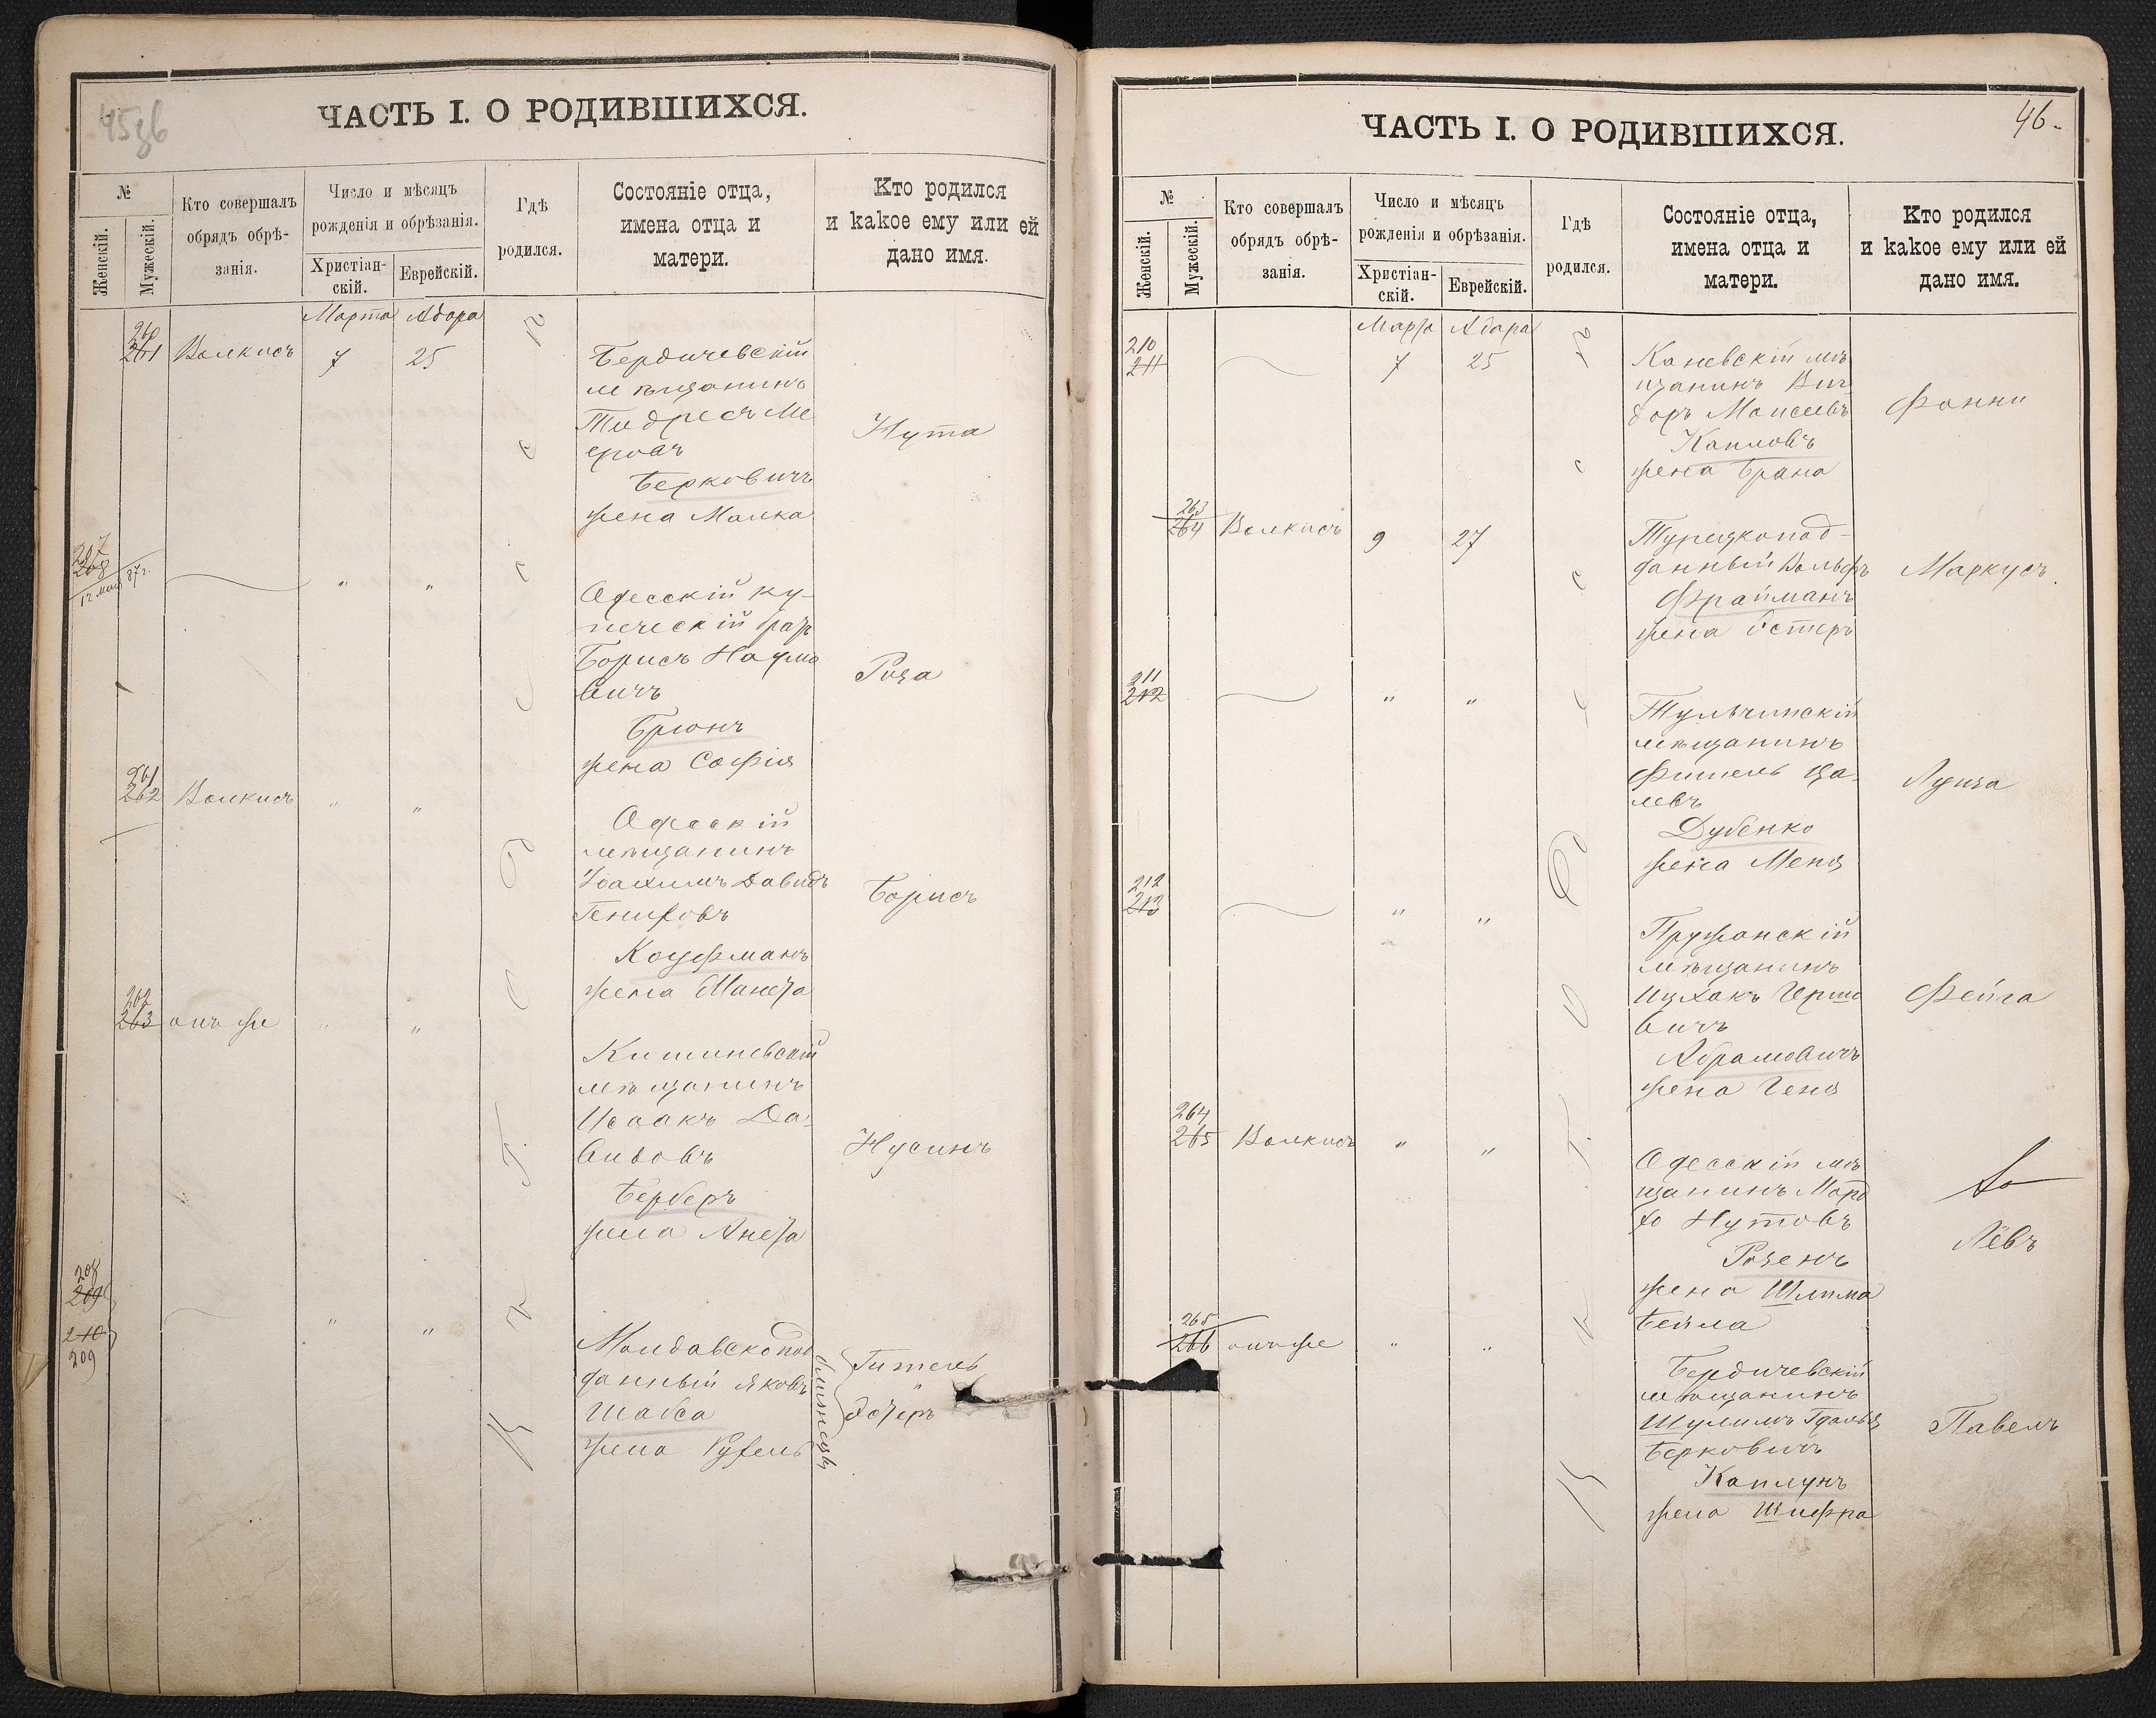 45 зв
ЧАСТЬ I. О РОДИВШИХСЯ.
№
Женскій.
Мужескій.
Кто совершалъ
обрядъ обрѣ-
занія.
Число и мѣсяцъ
рожденія и обрѣзанія.
Христіан-
скій.
Еврейскій.
Гдѣ
родился.
Состояніе отца,
имена отца и
матери.
Кто родился
и какое ему или ей
дано имя.
Марта Адара
260
261 Волкисъ 7 25
Бердичевскій
мѣщанинъ
Тодресъ Ме
еровъ
Берковичъ
жена Малка
Нута
207
208
12 мая 87 г.
" "
Одесскій ку-
печескій братъ
Борисъ Наумо
вичъ
Брюнъ
жена Софія
Роза
261
262 Волкисъ " "
Одесскій
мѣщанинъ
Іоахимъ Давидъ
Гениховъ
Кауфманъ
жена Манета
Борисъ
262
263 онъ же " "
Кишиневскій
мѣщанинъ
Исаакъ Да-
видовъ
Герберъ
жена Анета
Нусинъ
208
209
210
209
" "
Молдавскопод
данный Яковъ
Шабса
жена Рухель
близнецы
Гитель
Эстеръ
46.
ЧАСТЬ I. О РОДИВШИХСЯ.
№
Женскій.
Мужескій.
Кто совершалъ
обрядъ обрѣ-
занія.
Число и мѣсяцъ
рожденія и обрѣзанія.
Христіан-
скій.
Еврейскій.
Гдѣ
родился.
Состояніе отца,
имена отца и
матери.
Кто родился
и какое ему или ей
дано имя.
Марта Адара
210
211 7 25
Каневскій мѣ
щанинъ Виг
доръ Моисеевъ
Капловъ
жена Брана
Фанни
263
264 Волкисъ 9 27
Турецкопод-
данный Вольфъ
Фрайманъ
жена Эстеръ
Маркусъ.
211
212 " "
Тульчинскій
мѣщанинъ
Фишель Ца-
левъ
Дубенко
жена Меня
Луиза
212
213 " "
Пружанскій
мѣщанинъ
Ицхакъ Гершо
вичъ
Абрамовичъ
жена Геня
Фейга
264
265 Волкисъ " "
Одесскій мѣ
щанинъ Мord
хо Нутовъ
Розенъ
жена Шлима
Бейла
Левъ
265
266 онъ же " "
Бердичевскій
мѣщанинъ
Шулимъ Гдалья
Берковичъ
Каплунъ
жена Шифра
Павелъ